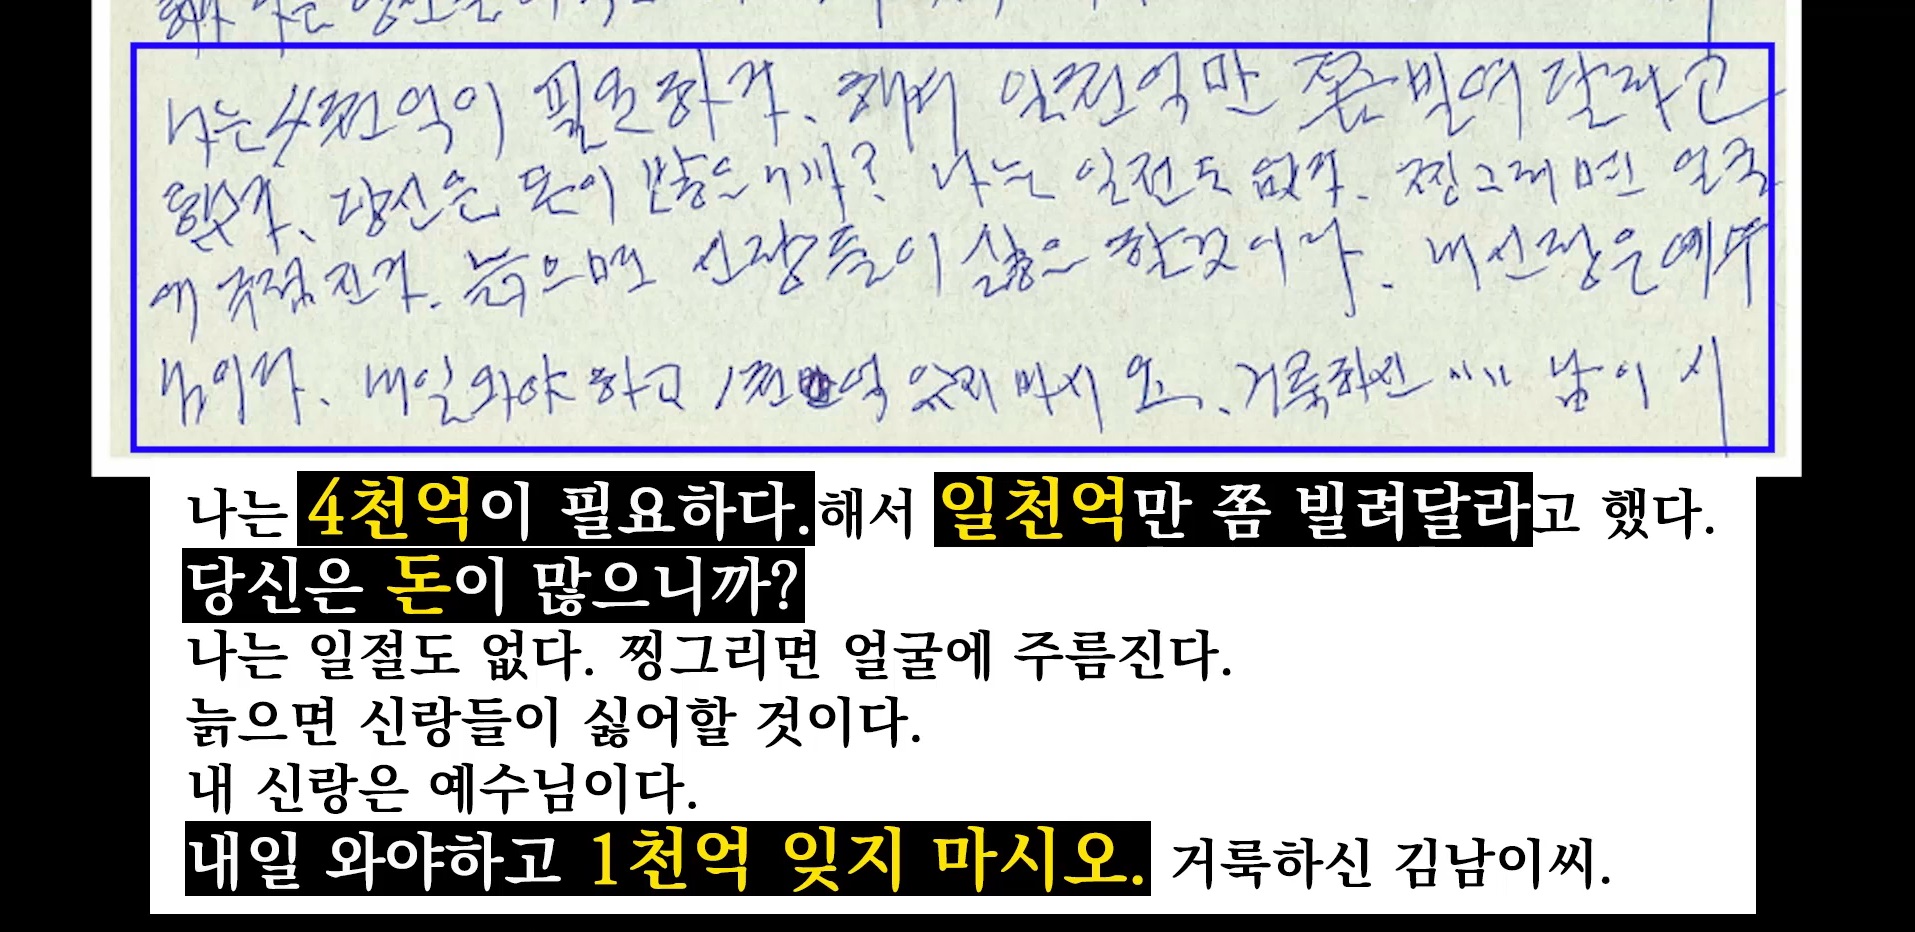 나는 4천억이 필요하다. 해서 일천억만 쫌 빌려 달라고
했다. 당신은 돈이 많으니까? 나는 일전도 없다. 찡그리면 얼굴
에 주름진다. 늙으면 신랑들이 싫은 할것이다. 내 신랑은 예수
님이다. 내일 와야 하고 1천억 잊지 마시오. 거룩하신 남이 시
나는 4천억이 필요하다.해서 일천억만 쫌 빌려달라고 했다.
당신은 돈이 많으니까?
나는 일절도 없다. 찡그리면 얼굴에 주름진다.
늙으면 신랑들이 싫어할 것이다.
내 신랑은 예수님이다.
내일 와야하고 1천억 잊지 마시오. 거룩하신 김남이씨.